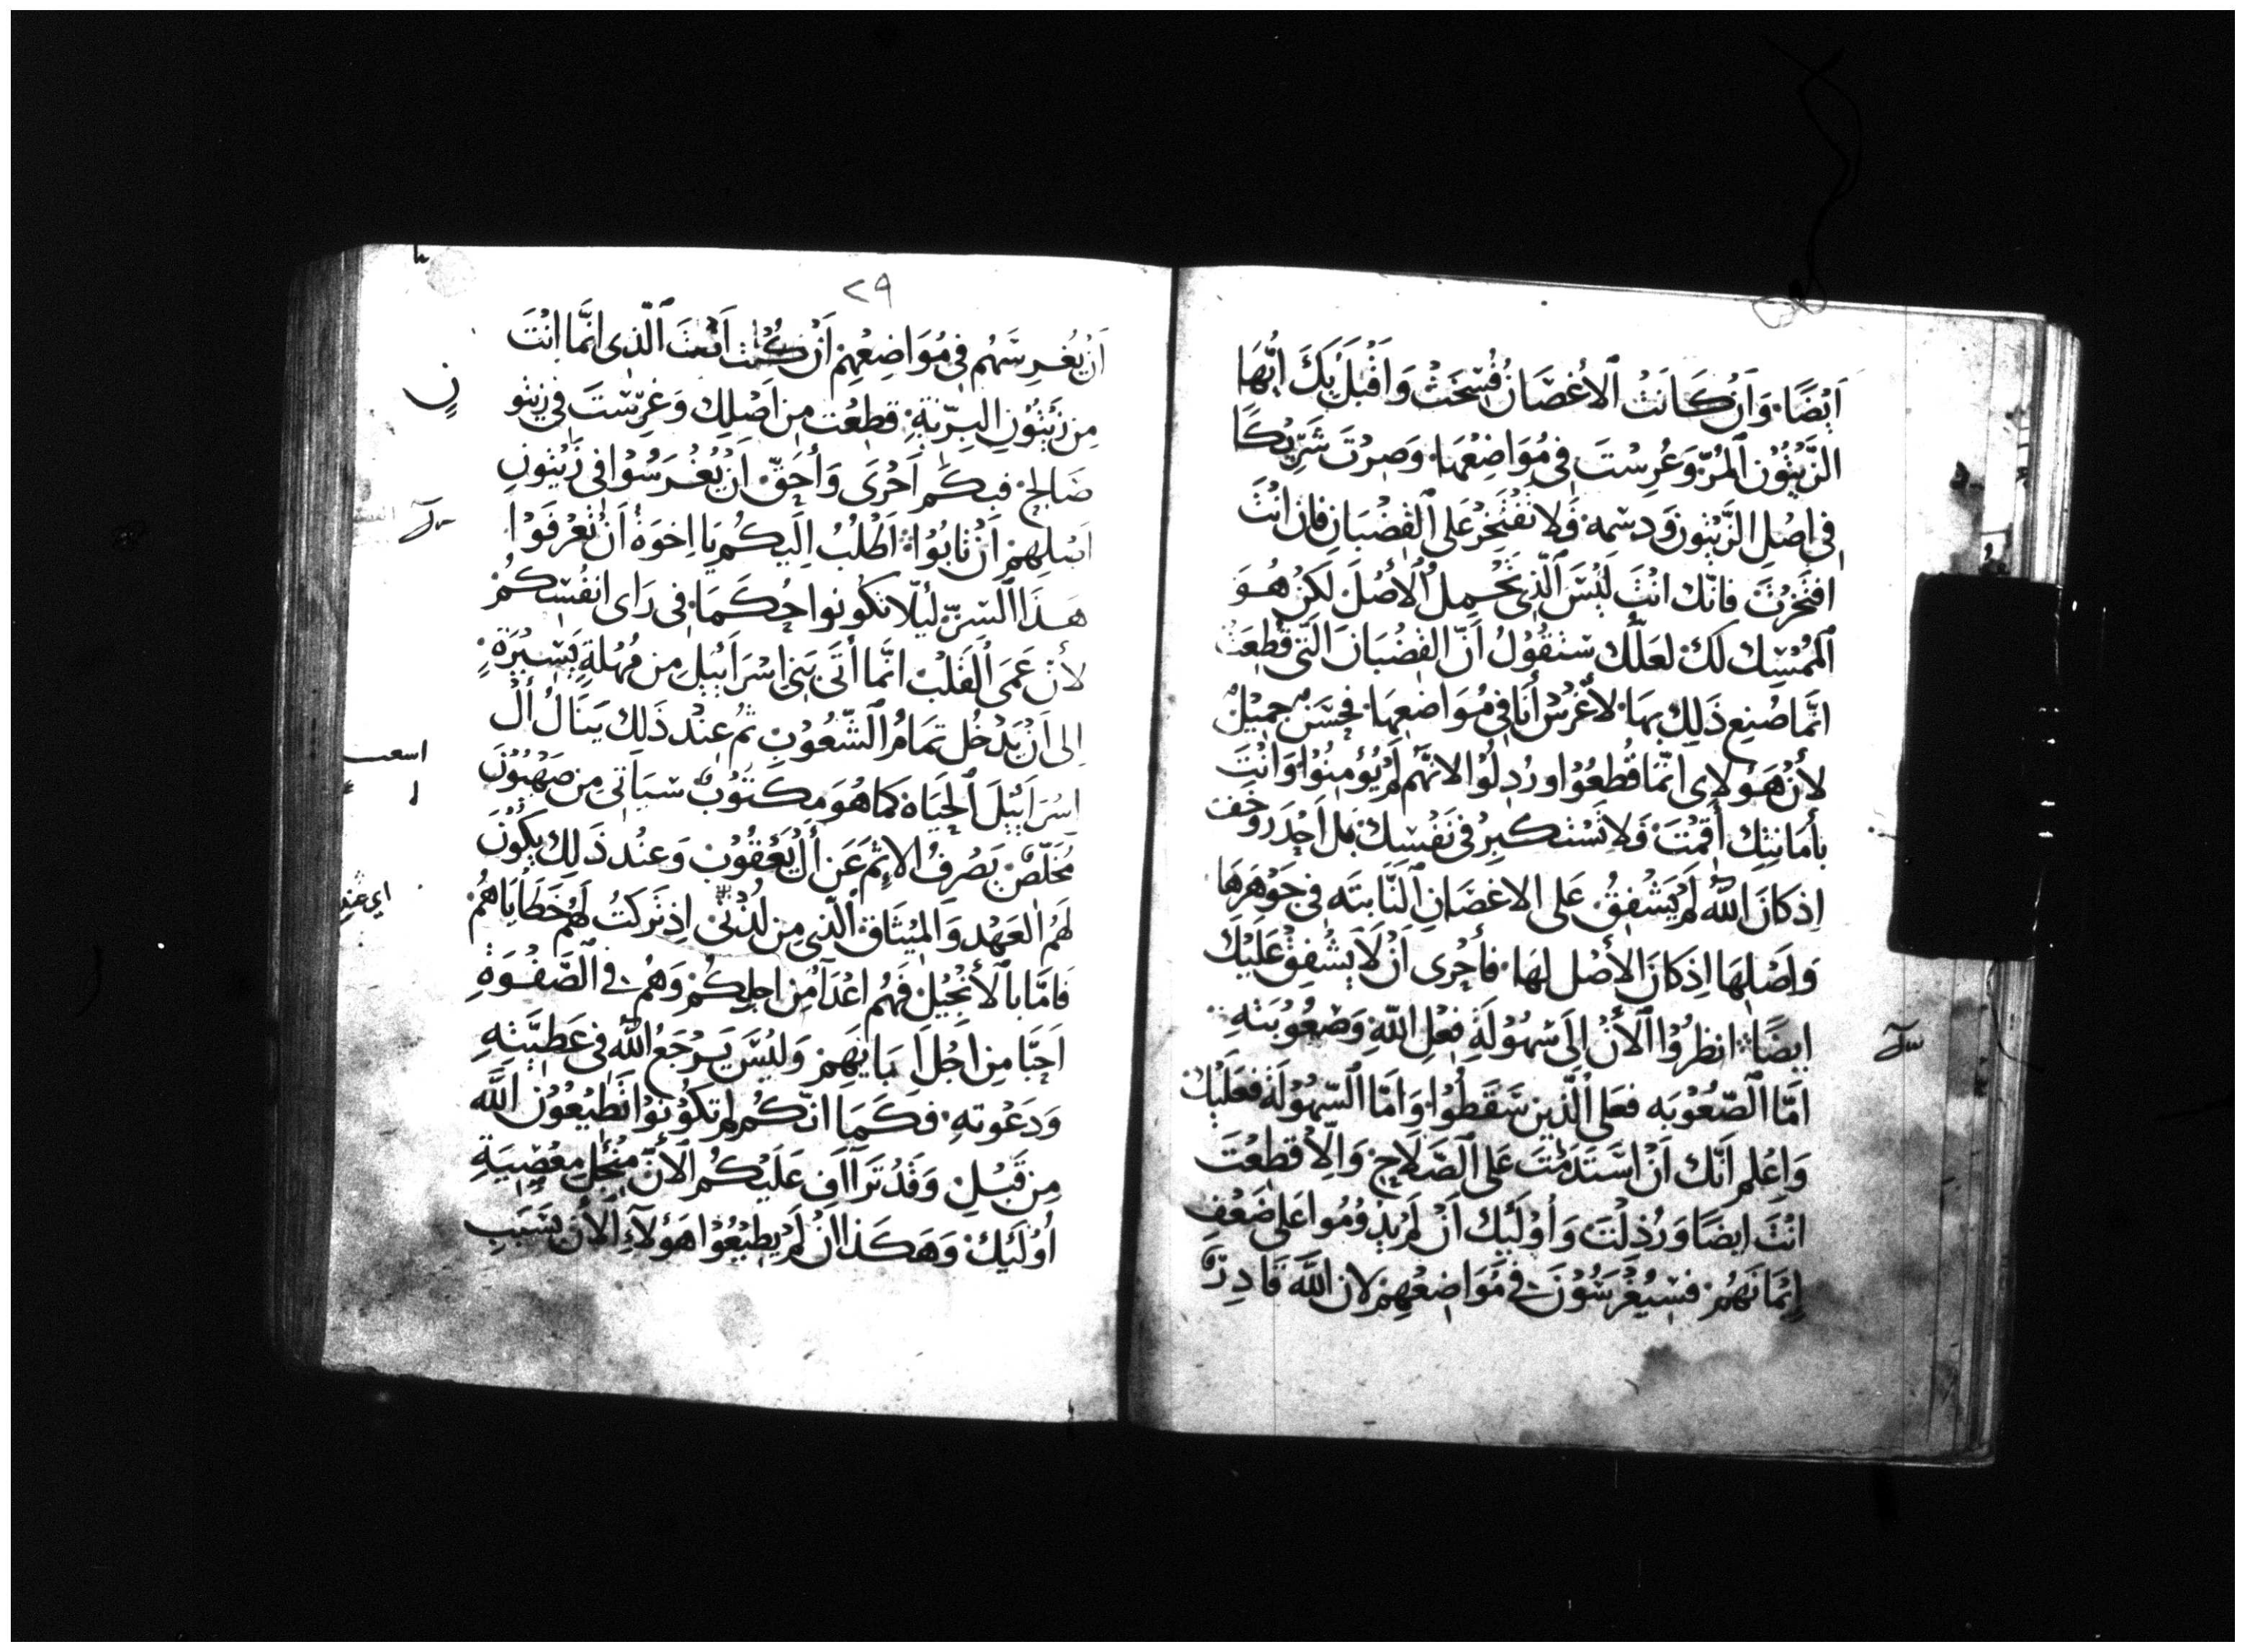 اَيْضًا. وَاَنْ كَانَتْ اَلأغصَانُ فُسِخَتْ وَاَقْبَلَ بِكَ اَيُّهَا
الزَّيْتُوْن اَلمُرّ وَغُرِسْتَ فِي مَوَاضِعْهَا. وَصِرْتَ شَرِيْكًا
فِي اصْلِ الزَّيْتُونِ وَدسمه فَلا تَفْتَخِرْ عَلى اَلقضْبَانِ فَان اَنْتَ
افتَخرْتَ فانّك انْتَ لَيْسَ اَلّذِي تَحْمِلُ اَلأصْلَ لَكِنْ هُوَ
اَلممْسِك لَكَ لعَلّك سَتَقُوْلُ اَنّ القضْبَانَ الَّتِي قُطِعَتْ
انَّما صُنِعَ ذَلِكَ بِهَا. لأغْرَسْ أَنَا فِي مَوَاضعهَا. فحَسَنٌ جَمِيْلٌ
لأنْ هَؤلاى انَّما قُطعُوْا ورُدلُوْا لانهَّم لَمْ يُؤمِنُوْا وَانْتَ
بأمَانتِك أَقمْتَ فَلا تَسْتكبِرْ فى نَفْسِكَ بَل اَحْدَرْ وَخَف
اِذ كَانَ الله لَمْ يَشْفِقْ عَلى الاغصَانِ اَلنَّابتَه فى جَوْهَرهَا
وَاَصْلهَا اِذ كَانَ الأصْل لهَا. فأحْرى اَنْ لَا يَشْفِقْ عَلَيْكَ
ايضًا انظرُوْا اَلأنْ اِلَى سُهُوْلَةِ فِعْلِ اللهِ وَصعُوْبَتهِ
اَمّا اَلصّعُوْبَه فعَلى اَلّذِين سَقَطُوْا وَاَمّا اَلسّهُوْلَة فَعَلَيْكَ
وَاعْلم اَنَّك اَنْ اسْتَدَمْتَ عَلى اَلصّلَاحِ وَالّا قُطِعْتَ
انْتَ ايضًا وَرُذِلْتَ وَأُوْلَئِك اَنْ لَمْ يَدُوْمُوا عَلى ضَعْفِ
اِيْمَانهُمْ فسيُغْرَسُوْنَ فِي مَوَاضِعْهِمْ لان اللهَ قَادِرٌ
٢٩
اَنْ يُغْرِسَهُم فِي مُوَاضِعْهِمْ اَنْ كُنْت اَنْتَ اَلّذِى انمَّا انْتَ
مِن زَيْتُوْنِ البرّيّةِ قطِعْت مِن اَصْلِك وَغُرِسْتَ فِي زيتو
صَالح فبكَمْ اَحْرَى وَأحَقّ اَنْ يُغْرَسُوْا فِى زَيْتُونِ
اَصلهِمْ اَنْ تابُوْا اَطْلُبُ اِلَيكُمْ يَا اِخوَةُ اَنْ تَعْرفَوْا
هَذَا اَلسِّرّ ليَلّا تكُونوا حُكَمَا. فى رَاى انفُسِكُمْ
لأنَ عَمَى اَلقَلْبْ انمَّا أَتَى بَنِي اسْرَايْيلِ مِن مُهلَةِ يَسِيرَةِ
اِلى اَنْ يَدْخُل تمَامُ اَلشّعُوْبِ ثُمّ عِنْد ذَلك يَنَالُ أَل
اِسْرَايْيلَ اَلحَيَاة كَما هُوَ مكتُوْبٌ سيَاَتى مِن صَهْيُوْن
مُخَلّصٌ يَصْرفُ الاِثْم عَن أل يَعْقُوْب وَعِنْد ذَلِك يكُوْن
لَهُم العَهْد وَالمِيْثَاق الّتى مِن لدُنّى اِذ تَركتُ لَهُم خَطَايَاهُمْ
فَامَّا بالأنجِيْل فَهُم اعْدَآ مِن اجلِكُمْ وَهُم فى اَلصَّفْوَةِ
اَحِبّا مِن اَجْل اَبَايهِمْ وَليْسَ يَرْجَعُ الله فى عَطِيَّتهِ
وَدَعْوتهِ. فكَمَا انّكُم لَم تكُوْنُوْا تَطِيْعُوْن الله
مِن قَبْلِ وَقَدْ تَرَااَف عَلَيْكُم الأنْ مِنْ اجْل مَعْصِيَةِ
اُوْلَئِكْ وَهَكَذا ان لَمْ يَطِيْعُوْا هَؤلآءِ اَلأن بسَبَبِ